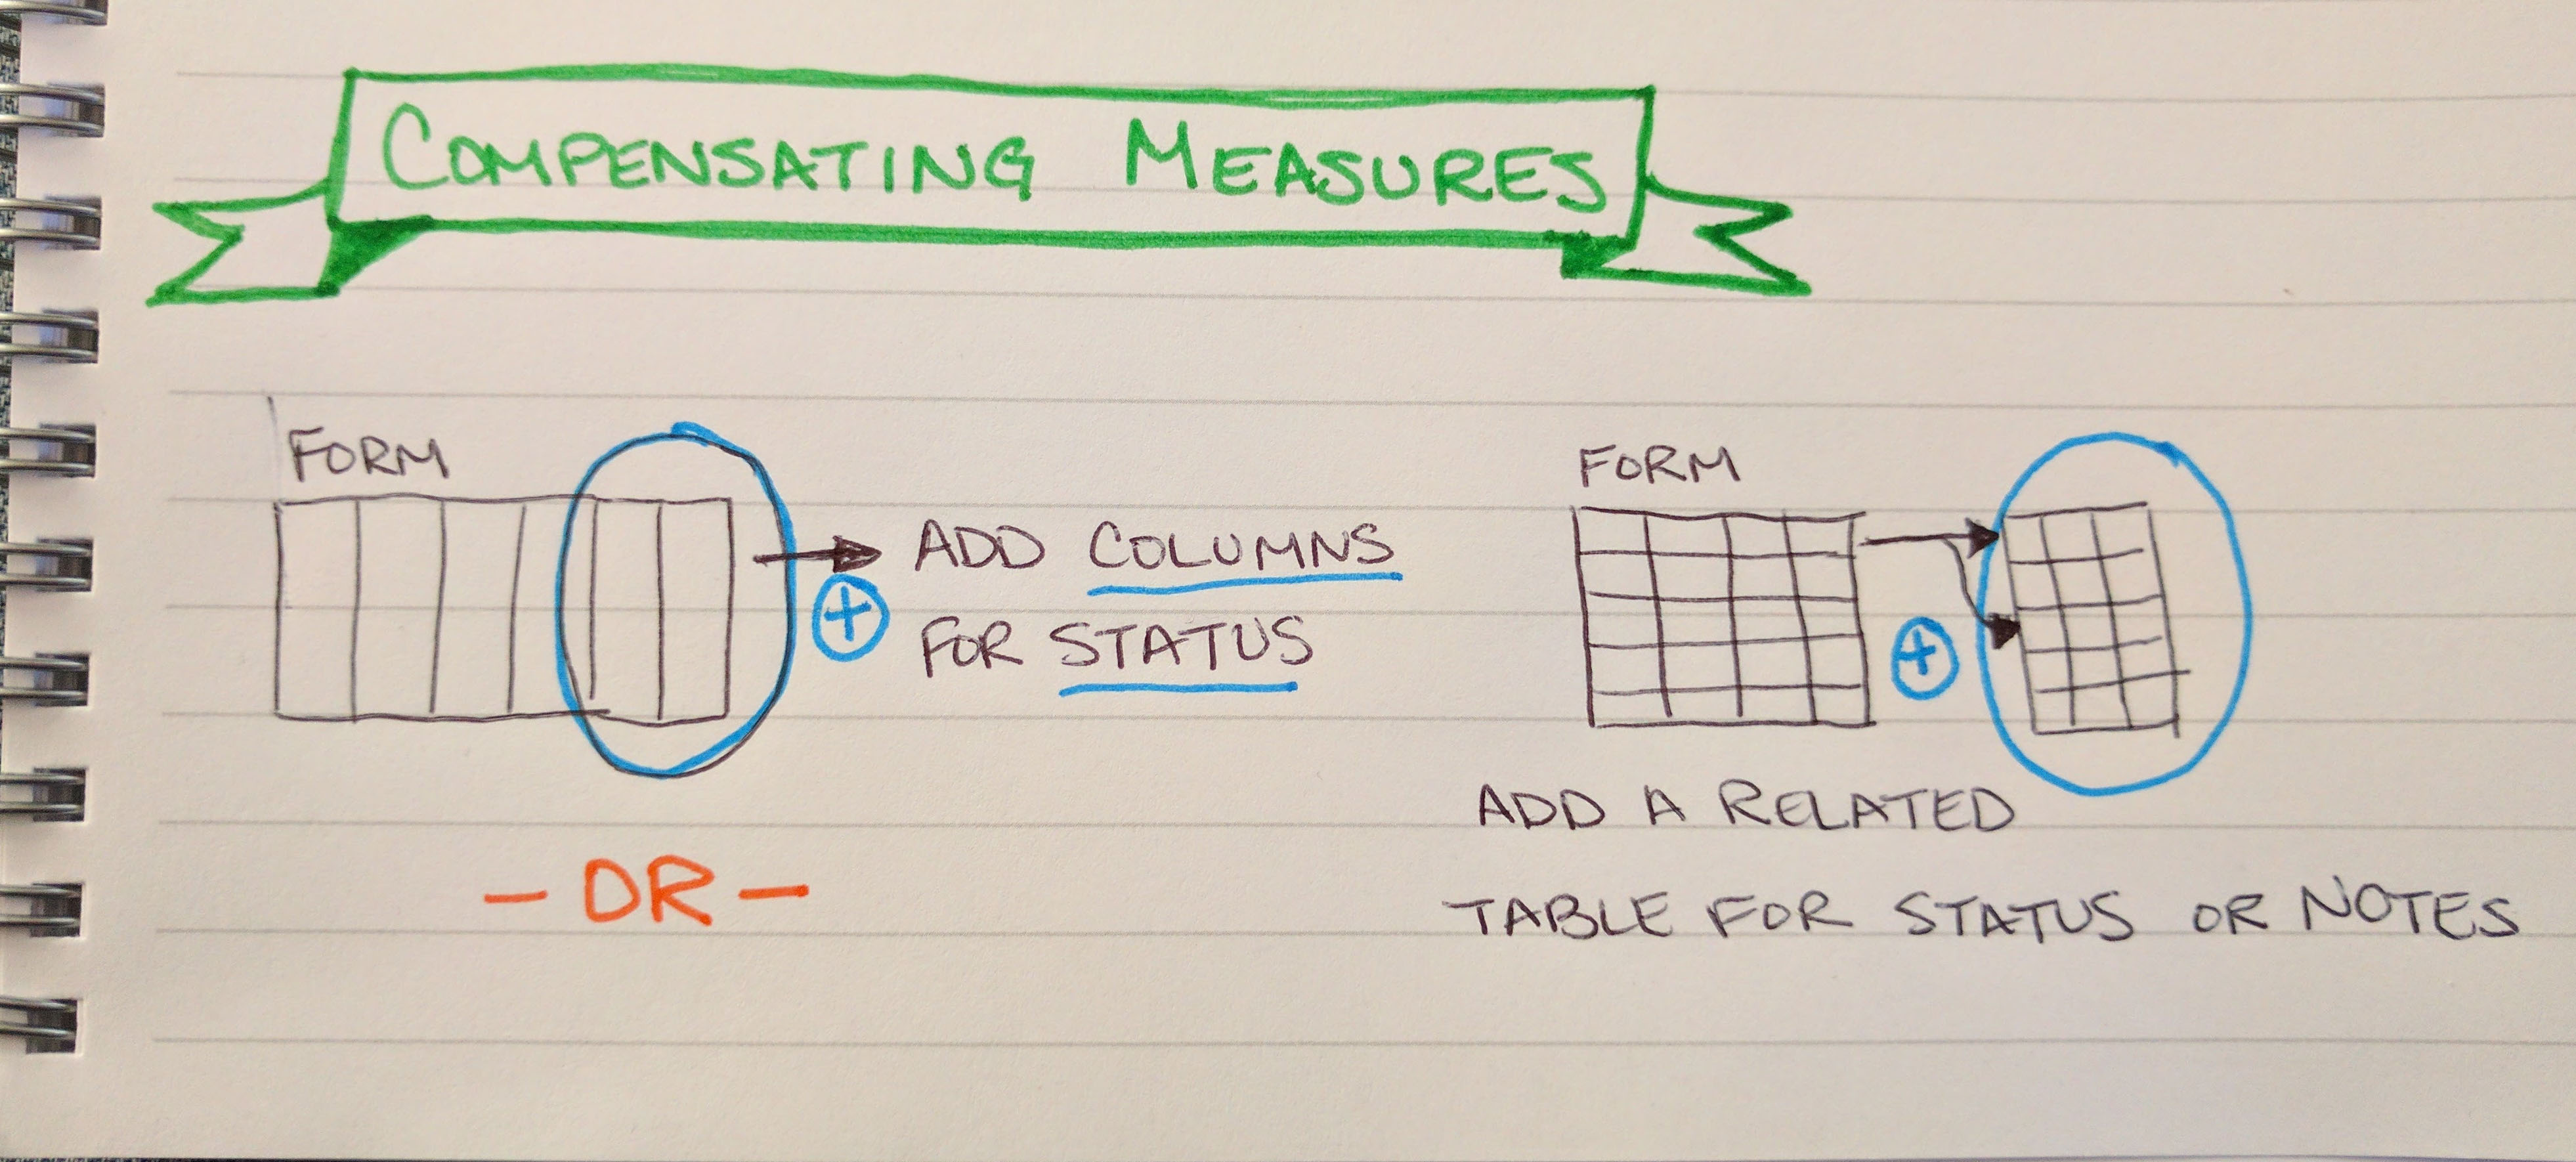 COMPENSATING MEASURES
FORM
+
ADD COLUMNS
FOR STATUS
- OR -
FORM
+
ADD A RELATED
TABLE FOR STATUS OR NOTES